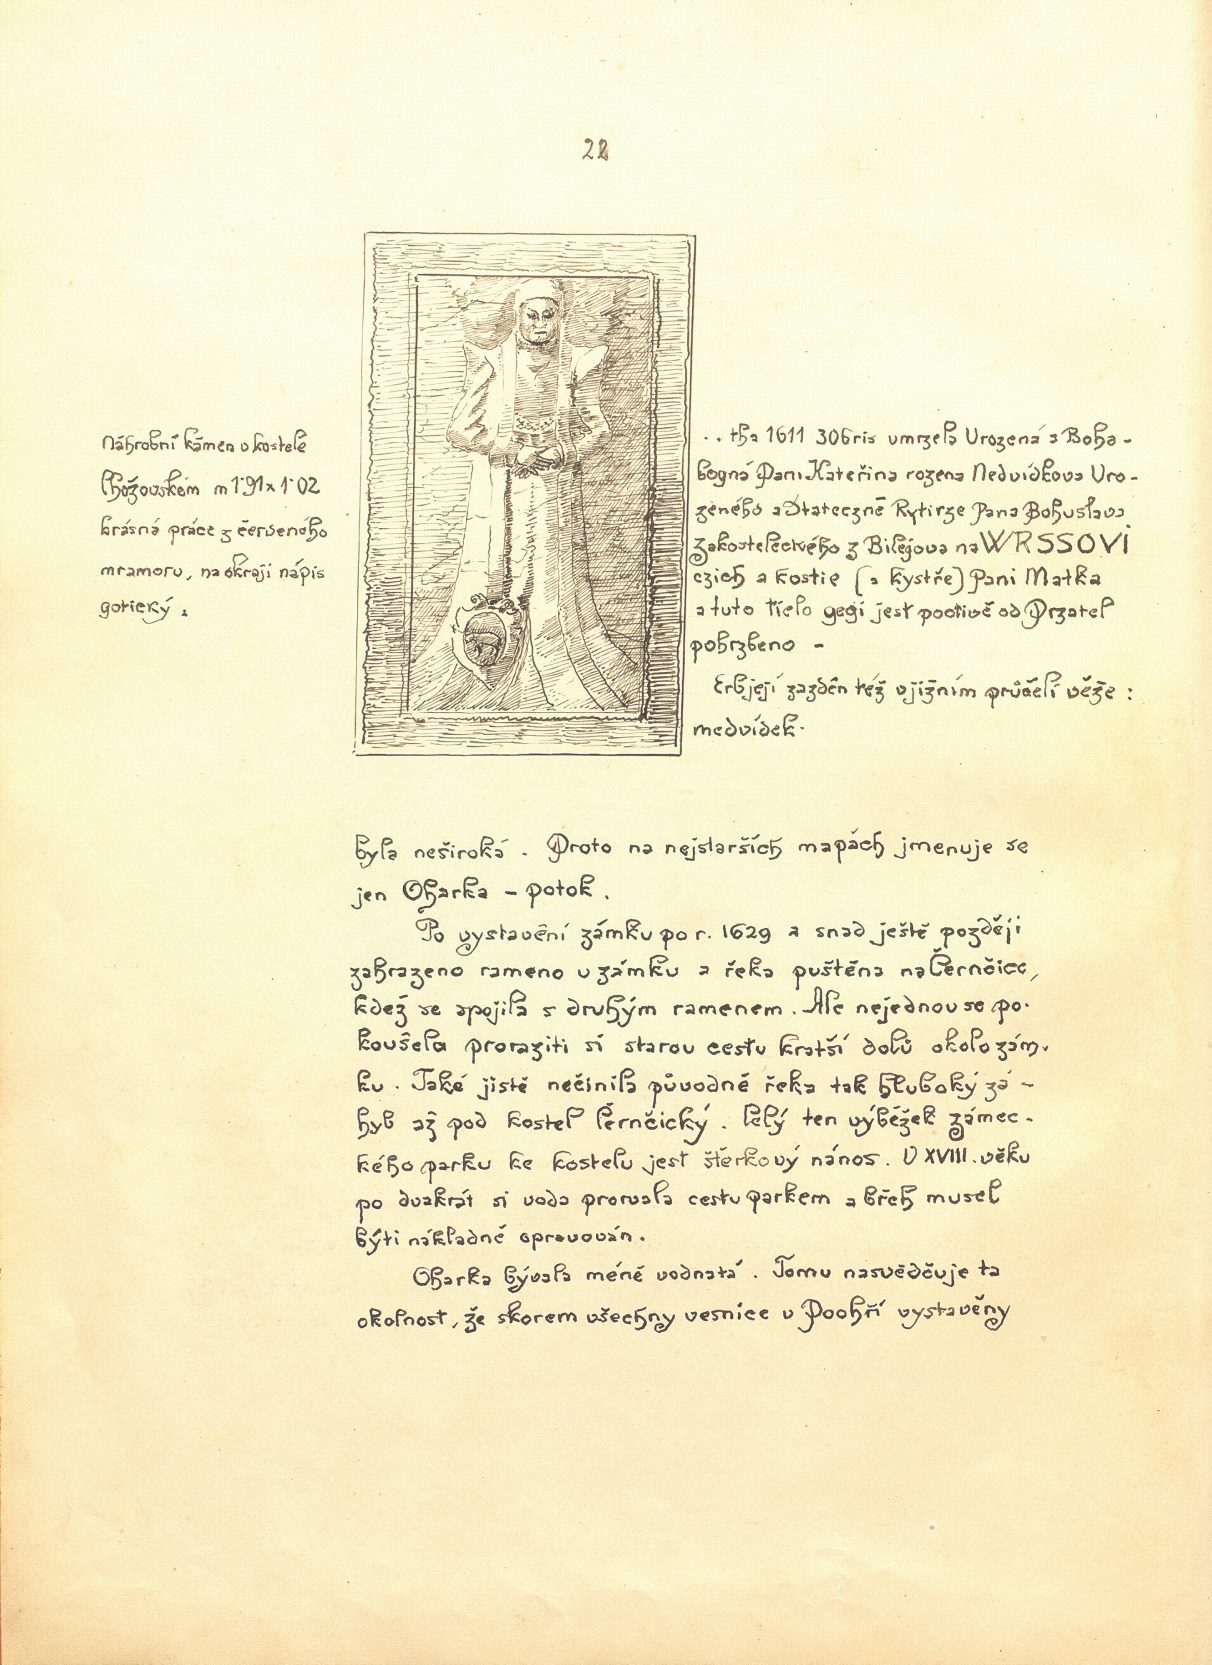 28
Náhrobní kámen v kostele
Chožovském m 1·91 x 1·02
krásná práce z červeného
mramoru, na okraji nápis
gotický :
.. tha 1611 30bris umrzela Urozená a Boha-
bogná Pani Kateřina rozena Nedvídkova Uro-
zeného a Stateczně Rytirze Pana Bohuslava
zakosteleckého z Bilejova na WRSSOVI
czich a kostie (a kystře) Pani Matka
a tuto tielo gegi jest poctivě od Przatel
pohrzbeno -
Erb její zazděn též v jižním průčelí věže :
medvídek.
byla neširoká. Proto na nejstarších mapách jmenuje se
jen Oharka - potok.
Po vystavění zámku po r. 1629 a snad ještě později
zahrazeno rameno u zámku a řeka puštěna na Černčice,
kdež se spojila s druhým ramenem. Ale nejednou se po-
koušela proraziti si starou cestu kratší dolů okolo zám-
ku. Také jistě nečinila původně řeka tak hluboký zá-
hyb až pod kostel Černčický. Celý ten výběžek zámec-
kého parku ke kostelu jest štěrkový nános. V XVIII. věku
po dvakrát si voda prorvala cestu parkem a břeh musel
býti nákladně opravován.
Oharka bývala méně vodnatá. Tomu nasvědčuje ta
okolnost, že skorem všechny vesnice v Poohří vystavěny